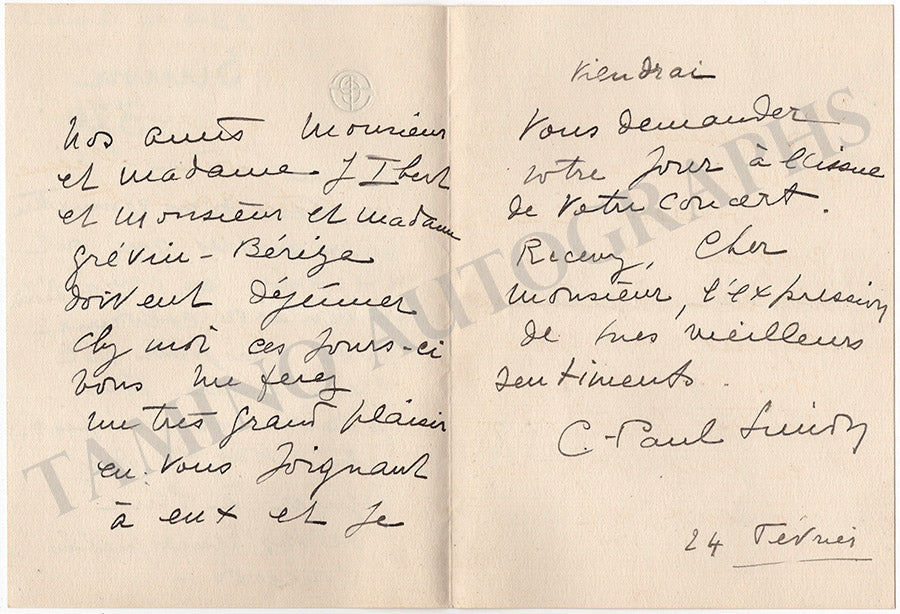 Nos amis Monsieur
et madame J Ibert
et Monsieur et madame
Grévin-Bérize
doivent déjeuner
chez moi ces jours-ci
vous me ferez
un très grand plaisir
en vous joignant
à eux et je
viendrai
vous demander
votre jour à l'issue
de votre concert.
Recevez, Cher
Monsieur, l'expression
de mes meilleurs
sentiments.
C. Paul
24 Février
TAMINO AUTOGRAPHS